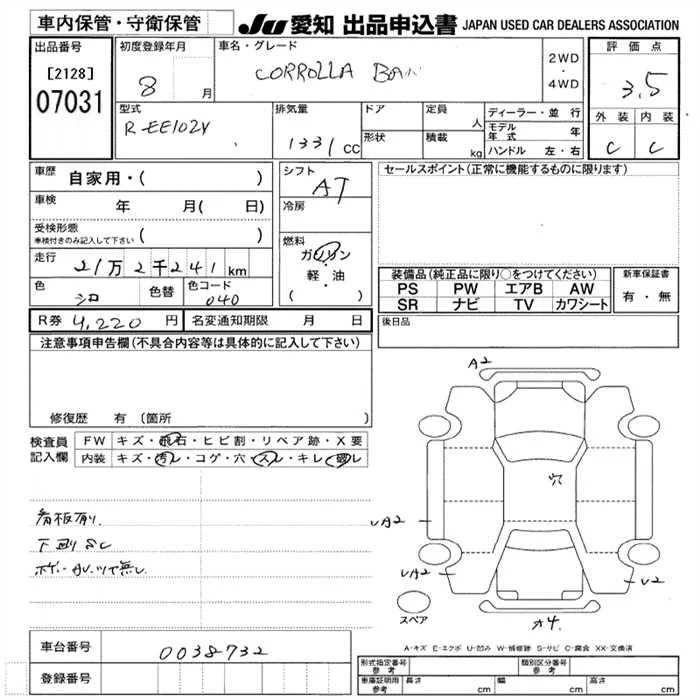 車内保管・守衛保管
JU 愛知 出品申込書 JAPAN USED CAR DEALERS ASSOCIATION
出品番号
[2128]
07031
初度登録年月
8 月
車名・グレード
COROLLA
2WD
・
4WD
評 価 点
3.5
外 装 内 装
C C
型式
R-EE102V
排気量
1331 cc
ドア
形状
定員
人
積載
kg
ディーラー・並 行
モデル
年 式 年
ハンドル 左・右
車歴 自家用・( )
車検 年 月( 日)
受検形態
車検付きのみ記入して下さい ( )
走行 21万2千241km
色 シロ 色替 色コード 040
シフト
AT
冷房
燃料
ガソリン
・
軽・油
( )
R券 4,220 円 名変通知期限 月 日
セールスポイント(正常に機能するものに限ります)
装備品(純正品に限り○をつけてください) 新車保証書
PS PW エアB AW
SR ナビ TV カワシート
有・無
後日品
注意事項申告欄(不具合内容等は具体的に記入して下さい)
修復歴 有 (箇所 )
検査員
記入欄
FW キズ・飛石・ヒビ割・リペア跡・X要
内装 キズ・汚レ・コゲ・穴・スレ・キレ・破レ
看板有り
下回りSC
A2
穴
UA2
UA2
U2
A4
スペア
A-キズ E-エクボ U-凹み W-補修跡 S-サビ C-腐食 XX-交換済
車台番号 0038732
登録番号
型式指定番号
参 考
類別区分番号
参 考
車庫証明用
参考
長さ cm 幅 cm 高さ cm